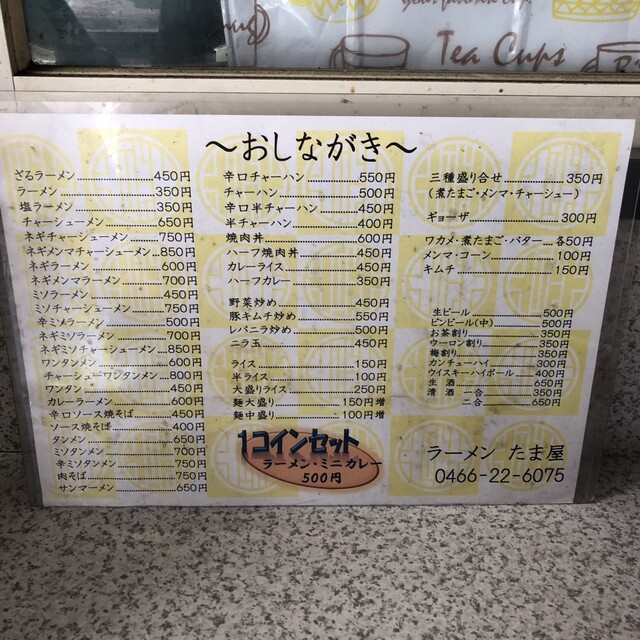 Tea Cups
～おしながき～
ざるラーメン 450円
ラーメン 350円
塩ラーメン 350円
チャーシューメン 650円
ネギチャーシューメン 750円
ネギメンマチャーシューメン 850円
ネギラーメン 600円
ネギメンマラーメン 700円
ミソラーメン 450円
ミソチャーシューメン 750円
辛ミソラーメン 500円
ネギミソラーメン 700円
ネギミソチャーシューメン 850円
ワンタンメン 600円
チャーシューワンタンメン 800円
ワンタン 450円
カレーラーメン 600円
辛口ソース焼そば 450円
ソース焼そば 400円
タンメン 650円
ミソタンメン 700円
辛ミソタンメン 750円
肉そば 750円
サンマーメン 650円
辛口チャーハン 550円
チャーハン 500円
辛口半チャーハン 450円
半チャーハン 400円
焼肉丼 600円
ハーフ焼肉丼 450円
カレーライス 450円
ハーフカレー 350円
野菜炒め 450円
豚キムチ炒め 550円
レバニラ炒め 500円
ニラ玉 450円
ライス 150円
半ライス 100円
大盛りライス 250円
麺大盛り 150円増
麺中盛り 100円増
1コインセット
ラーメン・ミニカレー
500円
三種盛り合せ 350円
(煮たまご・メンマ・チャーシュー)
ギョーザ 300円
ワカメ・煮たまご・バター 各50円
メンマ・コーン 100円
キムチ 150円
生ビール 500円
ビンビール(中) 500円
お茶割り 350円
ウーロン割り 350円
梅割り 350円
カンチューハイ 300円
ウイスキーハイボール 400円
生酒 650円
清酒 一合 350円
二合 650円
ラーメン たま屋
0466-22-6075